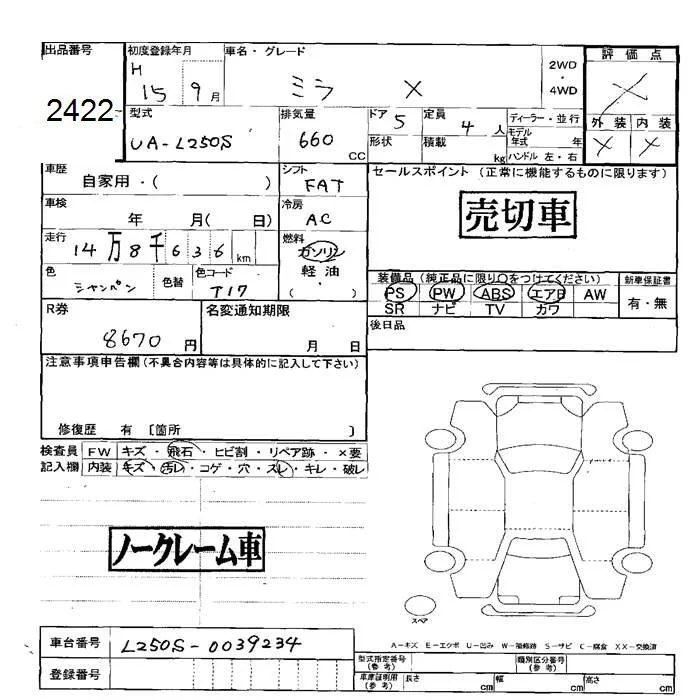 出品番号
2422
初度登録年月
H 15 9月
車名・グレード
ミラ X
2WD
・
4WD
評価点
X
外装 内装
X X
型式
UA-L250S
排気量
660
CC
ドア 5
形状
定員 4人
積載 kg
ディーラー・並行
モデル年式 年
ハンドル 左・右
車歴
自家用・( )
シフト
FAT
セールスポイント (正常に機能するものに限ります)
売切車
車検
年 月( 日)
冷房
AC
走行
14万8千636km
燃料
ガソリン
軽油
( )
色
シャンペン
色替
色コード
T17
装備品 (純正品に限り〇をつけてください)
新車保証書
PS PW ABS エアB AW
有・無
SR ナビ TV カワ
R券
8670円
名変通知期限
月 日
後日品
注意事項申告欄(不具合内容等は具体的に記入して下さい)
修復歴 有 〔箇所 〕
検査員
記入欄
FW キズ・飛石・ヒビ割・リペア跡・×要
内装 キズ・汚レ・コゲ・穴・スレ・キレ・破レ
ノークレーム車
スペア
A-キズ E-エクボ U-凹み W-補修跡 S-サビ C-腐食 XX-交換済
車台番号
L250S-0039234
登録番号
型式指定番号
(参考)
類別区分番号
(参考)
車庫証明用
(参考)
長さ cm 幅 cm 高さ cm